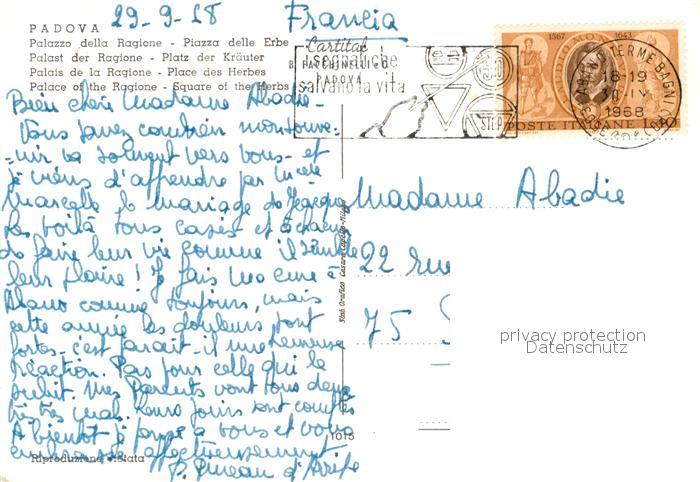 29-9-68 Francia
PADOVA
Palazzo della Ragione - Piazza delle Erbe
Palast der Ragione - Platz der Kräuter
Palais de la Ragione - Place des Herbes
Palace of the Ragione - Square of the Herbs
PADOVA
I segnali che
salvano la vita
STOP
1567 1643
ABANO TERME BAGNI
18-19
30.IX
1968
POSTE ITALIANE L.40
Bien chère Madame Abadie-
Vous savez combien mon souve-
-nir va souvent vers vous- et
je viens d'apprendre par
Marcelle le mariage de Jacques
Les voilà tous casés et à chacun
de faire leur vie comme il semble
leur plaire! Je fais ma cure à
Abano comme toujours, mais
cette année les douleurs sont
fortes- c'est paraît-il une heureuse
réaction. Pas pour celle qui la
subit. Mes Parents vont tous deux
très mal. Leurs jours sont comptés
A bientôt je pense à vous et vous
embrasse affectueusement
Madame Abadie
22 rue
75 S
Stab. Grafico Cesare Capello - Milano
1015
Riproduzione vietata
privacy protection
Datenschutz